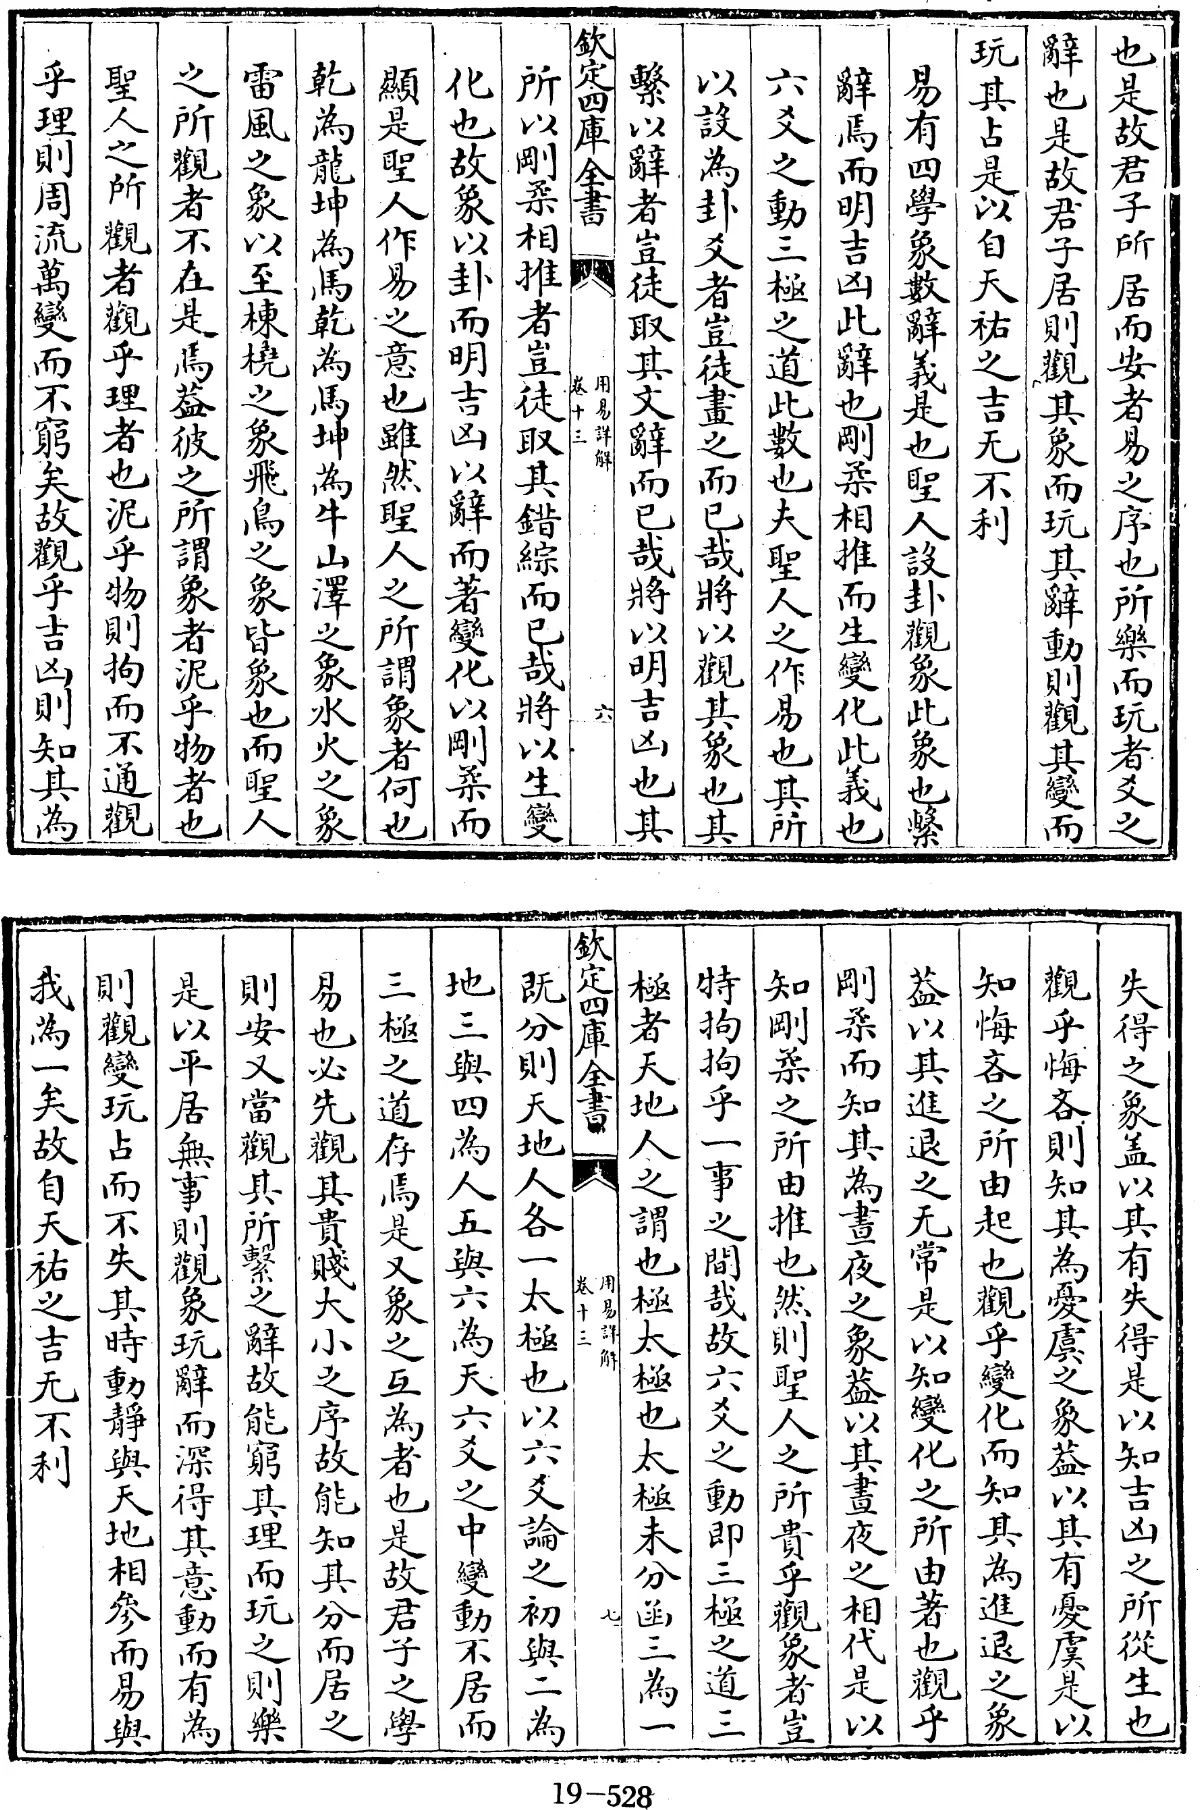 也是故君子所居而安者易之序也所樂而玩者爻之
辭也是故君子居則觀其象而玩其辭動則觀其變而
玩其占是以自天祐之吉无不利
易有四學象數辭義是也聖人設卦觀象此象也繫
辭焉而明吉凶此辭也剛柔相推而生變化此義也
六爻之動三極之道此數也夫聖人之作易也其所
以設為卦爻者豈徒畫之而已哉將以觀其象也其
繫以辭者豈徒取其文辭而已哉將以明吉凶也其
欽定四庫全書
用易詳解
卷十三
六
所以剛柔相推者豈徒取其錯綜而已哉將以生變
化也故象以卦而明吉凶以辭而著變化以剛柔而
顯是聖人作易之意也雖然聖人之所謂象者何也
乾為龍坤為馬乾為馬坤為牛山澤之象水火之象
雷風之象以至棟橈之象飛鳥之象皆象也而聖人
之所觀者不在是焉葢彼之所謂象者泥乎物者也
聖人之所觀者觀乎理者也泥乎物則拘而不通觀
乎理則周流萬變而不窮矣故觀乎吉凶則知其為
失得之象盖以其有失得是以知吉凶之所從生也
觀乎悔吝則知其為憂虞之象葢以其有憂虞是以
知悔吝之所由起也觀乎變化而知其為進退之象
葢以其進退之无常是以知變化之所由著也觀乎
剛柔而知其為晝夜之象葢以其晝夜之相代是以
知剛柔之所由推也然則聖人之所貴乎觀象者豈
特拘拘乎一事之間哉故六爻之動即三極之道三
極者天地人之謂也極太極也太極未分函三為一
欽定四庫全書
用易詳解
卷十三
七
既分則天地人各一太極也以六爻論之初與二為
地三與四為人五與六為天六爻之中變動不居而
三極之道存焉是又象之互為者也是故君子之學
易也必先觀其貴賤大小之序故能知其分而居之
則安又當觀其所繫之辭故能窮其理而玩之則樂
是以平居無事則觀象玩辭而深得其意動而有為
則觀變玩占而不失其時動靜與天地相參而易與
我為一矣故自天祐之吉无不利
19-528